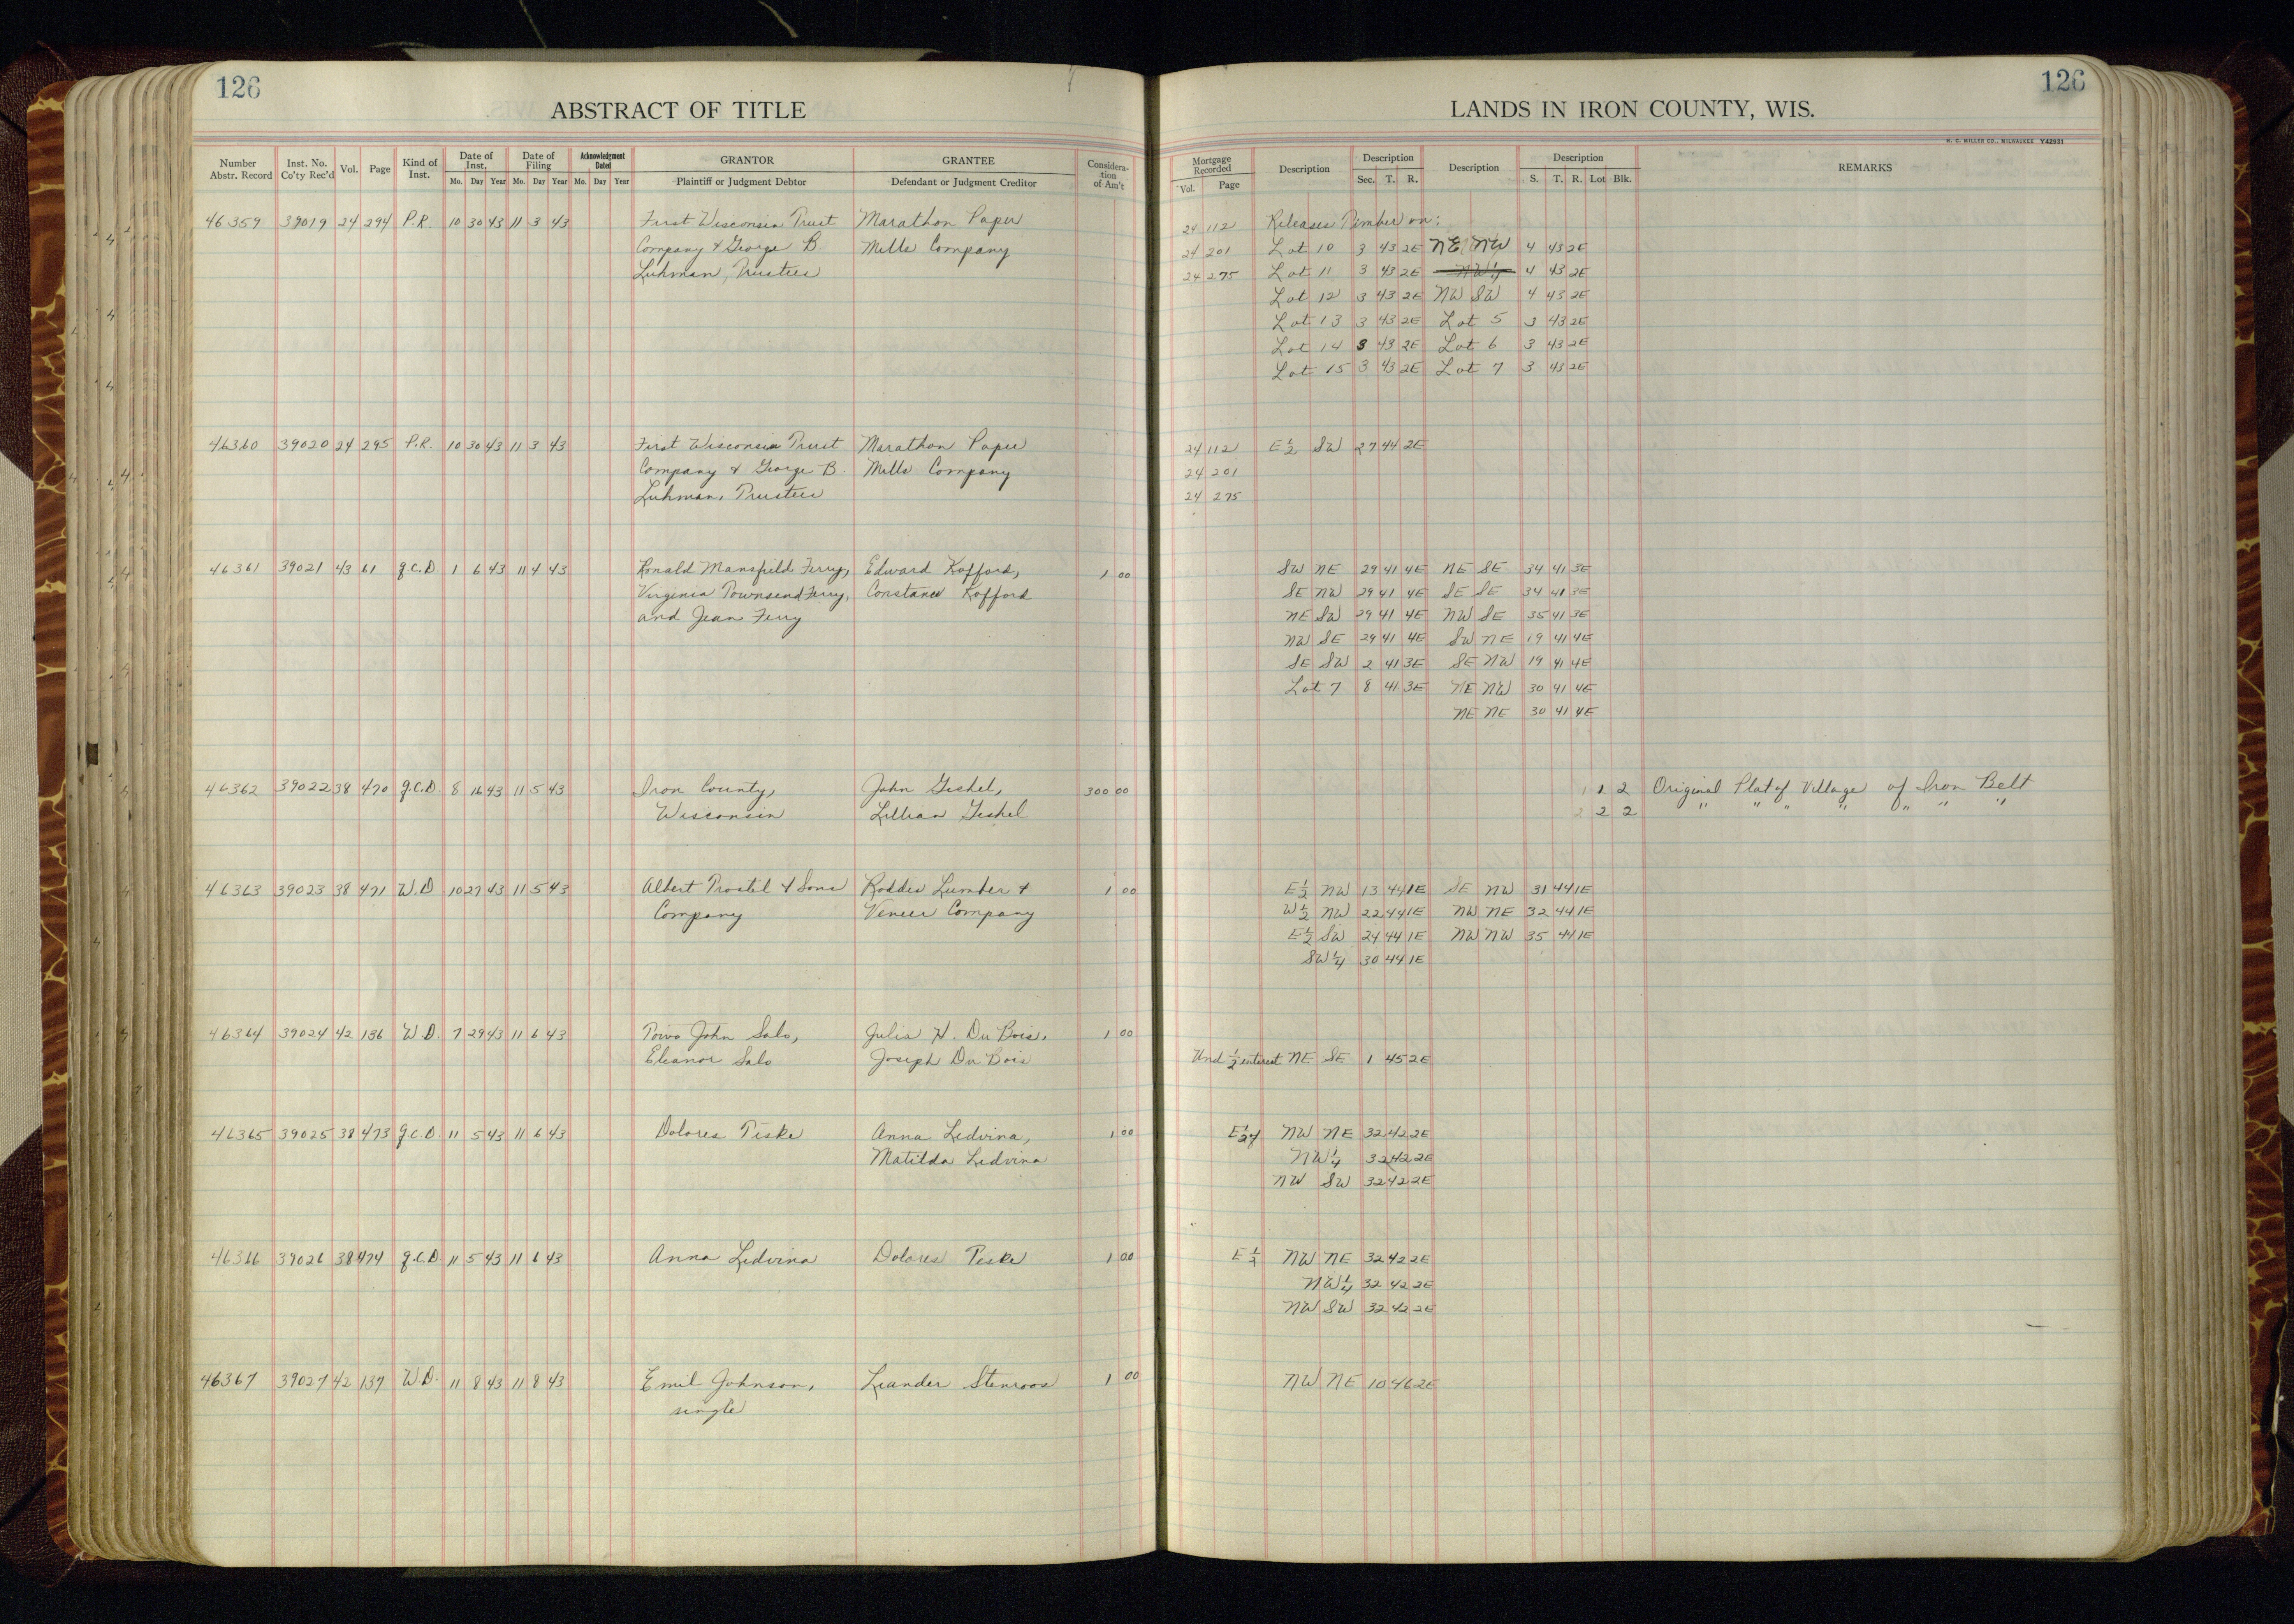 126
ABSTRACT OF TITLE
Number Abstr. Record
Inst. No. Co'ty Rec'd
Vol.
Page
Kind of Inst.
Date of Inst.
Mo. Day Year
Date of Filing
Mo. Day Year
Acknowledgment Dated
Mo. Day Year
GRANTOR
Plaintiff or Judgment Debtor
GRANTEE
Defendant or Judgment Creditor
Considera-tion of Am't
46359 39019 24 294 P.R. 10 30 43 11 3 43 First Wisconsin Trust Marathon Paper
Company & George B. Mills Company
Luhman, Trustees
46360 39020 24 295 P.R. 10 30 43 11 3 43 First Wisconsin Trust Marathon Paper
Company & George B. Mills Company
Luhman, Trustees
46361 39021 43 61 q.c.D. 1 6 43 11 4 43 Ronald Mansfield Ferry, Edward Kofford, 1 00
Virginia Townsend Ferry, Constance Kofford
and Jean Ferry
46362 39022 38 470 q.C.D. 8 16 43 11 5 43 Iron County, John Geshel, 300 00
Wisconsin Lillian Geshel
46363 39023 38 471 W.D. 10 27 43 11 5 43 Albert Trostel & Sons Roddis Lumber & 1 00
Company Veneer Company
46364 39024 42 136 W.D. 7 29 43 11 6 43 Toivo John Salo, Julia H. Du Bois, 1 00
Eleanor Salo Joseph Du Bois
46365 39025 38 473 q.c.D. 11 5 43 11 6 43 Dolores Peske Anna Ledvina, 1 00
Matilda Ledvina
46366 39026 38 474 q.c.D. 11 5 43 11 6 43 Anna Ledvina Dolores Peske 1 00
46367 39027 42 137 W.D. 11 8 43 11 8 43 Emil Johnson, Leander Stenroos 1 00
single
126
LANDS IN IRON COUNTY, WIS.
H. C. MILLER CO., MILWAUKEE Y42931
Mortgage Recorded
Vol. Page
Description
Description
Sec. T. R.
Description
Description
S. T. R. Lot Blk.
REMARKS
24 112 Releases Timber on:
24 201 Lot 10 3 43 2E NE NW 4 43 2E
24 275 Lot 11 3 43 2E NW¼ 4 43 2E
Lot 12 3 43 2E NW SW 4 43 2E
Lot 13 3 43 2E Lot 5 3 43 2E
Lot 14 3 43 2E Lot 6 3 43 2E
Lot 15 3 43 2E Lot 7 3 43 2E
24 112 E½ SW 27 44 2E
24 201
24 275
SW NE 29 41 4E NE SE 34 41 3E
SE NW 29 41 4E SE SE 34 41 3E
NE SW 29 41 4E NW SE 35 41 3E
NW SE 29 41 4E SW NE 19 41 4E
SE SW 2 41 3E SE NW 19 41 4E
Lot 7 8 41 3E NE NW 30 41 4E
NE NE 30 41 4E
1 1 2 Original Plat of Village of Iron Belt
2 2 2 " " " " " " "
E½ NW 13 44 1E SE NW 31 44 1E
W½ NW 22 44 1E NW NE 32 44 1E
E½ SW 24 44 1E NW NW 35 44 1E
SW¼ 30 44 1E
Und ½ interest NE SE 1 45 2E
E½ of NW NE 32 42 2E
NW¼ 32 42 2E
NW SW 32 42 2E
E½ NW NE 32 42 2E
NW¼ 32 42 2E
NW SW 32 42 2E
NW NE 10 46 2E